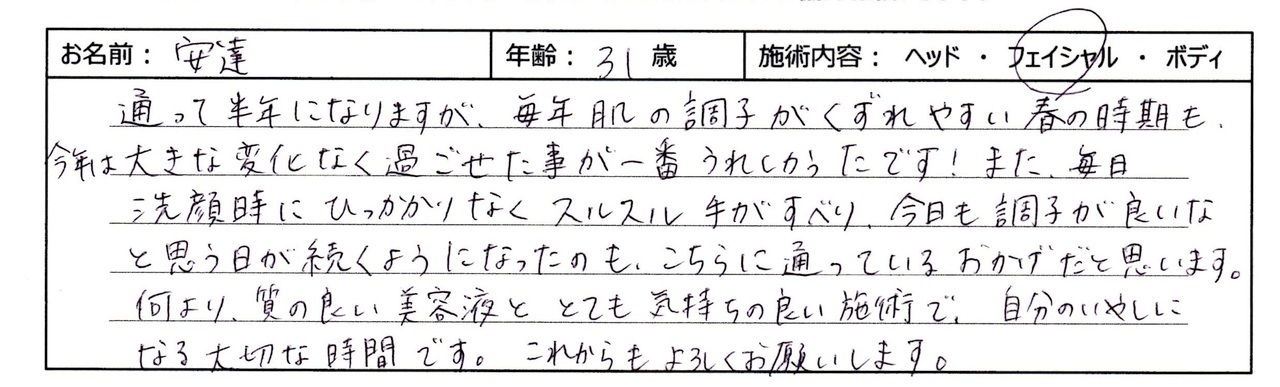 お名前： 安達 年齢： 31 歳 施術内容： ヘッド ・ フェイシャル ・ ボディ
通って半年になりますが、毎年肌の調子がくずれやすい春の時期も、
今年は大きな変化なく過ごせた事が一番うれしかったです！また、毎日
洗顔時にひっかかりなくスルスル手がすべり、今日も調子が良いな
と思う日が続くようになったのも、こちらに通っているおかげだと思います。
何より、質の良い美容液ととても気持ちの良い施術で、自分のいやしに
なる大切な時間です。これからもよろしくお願いします。